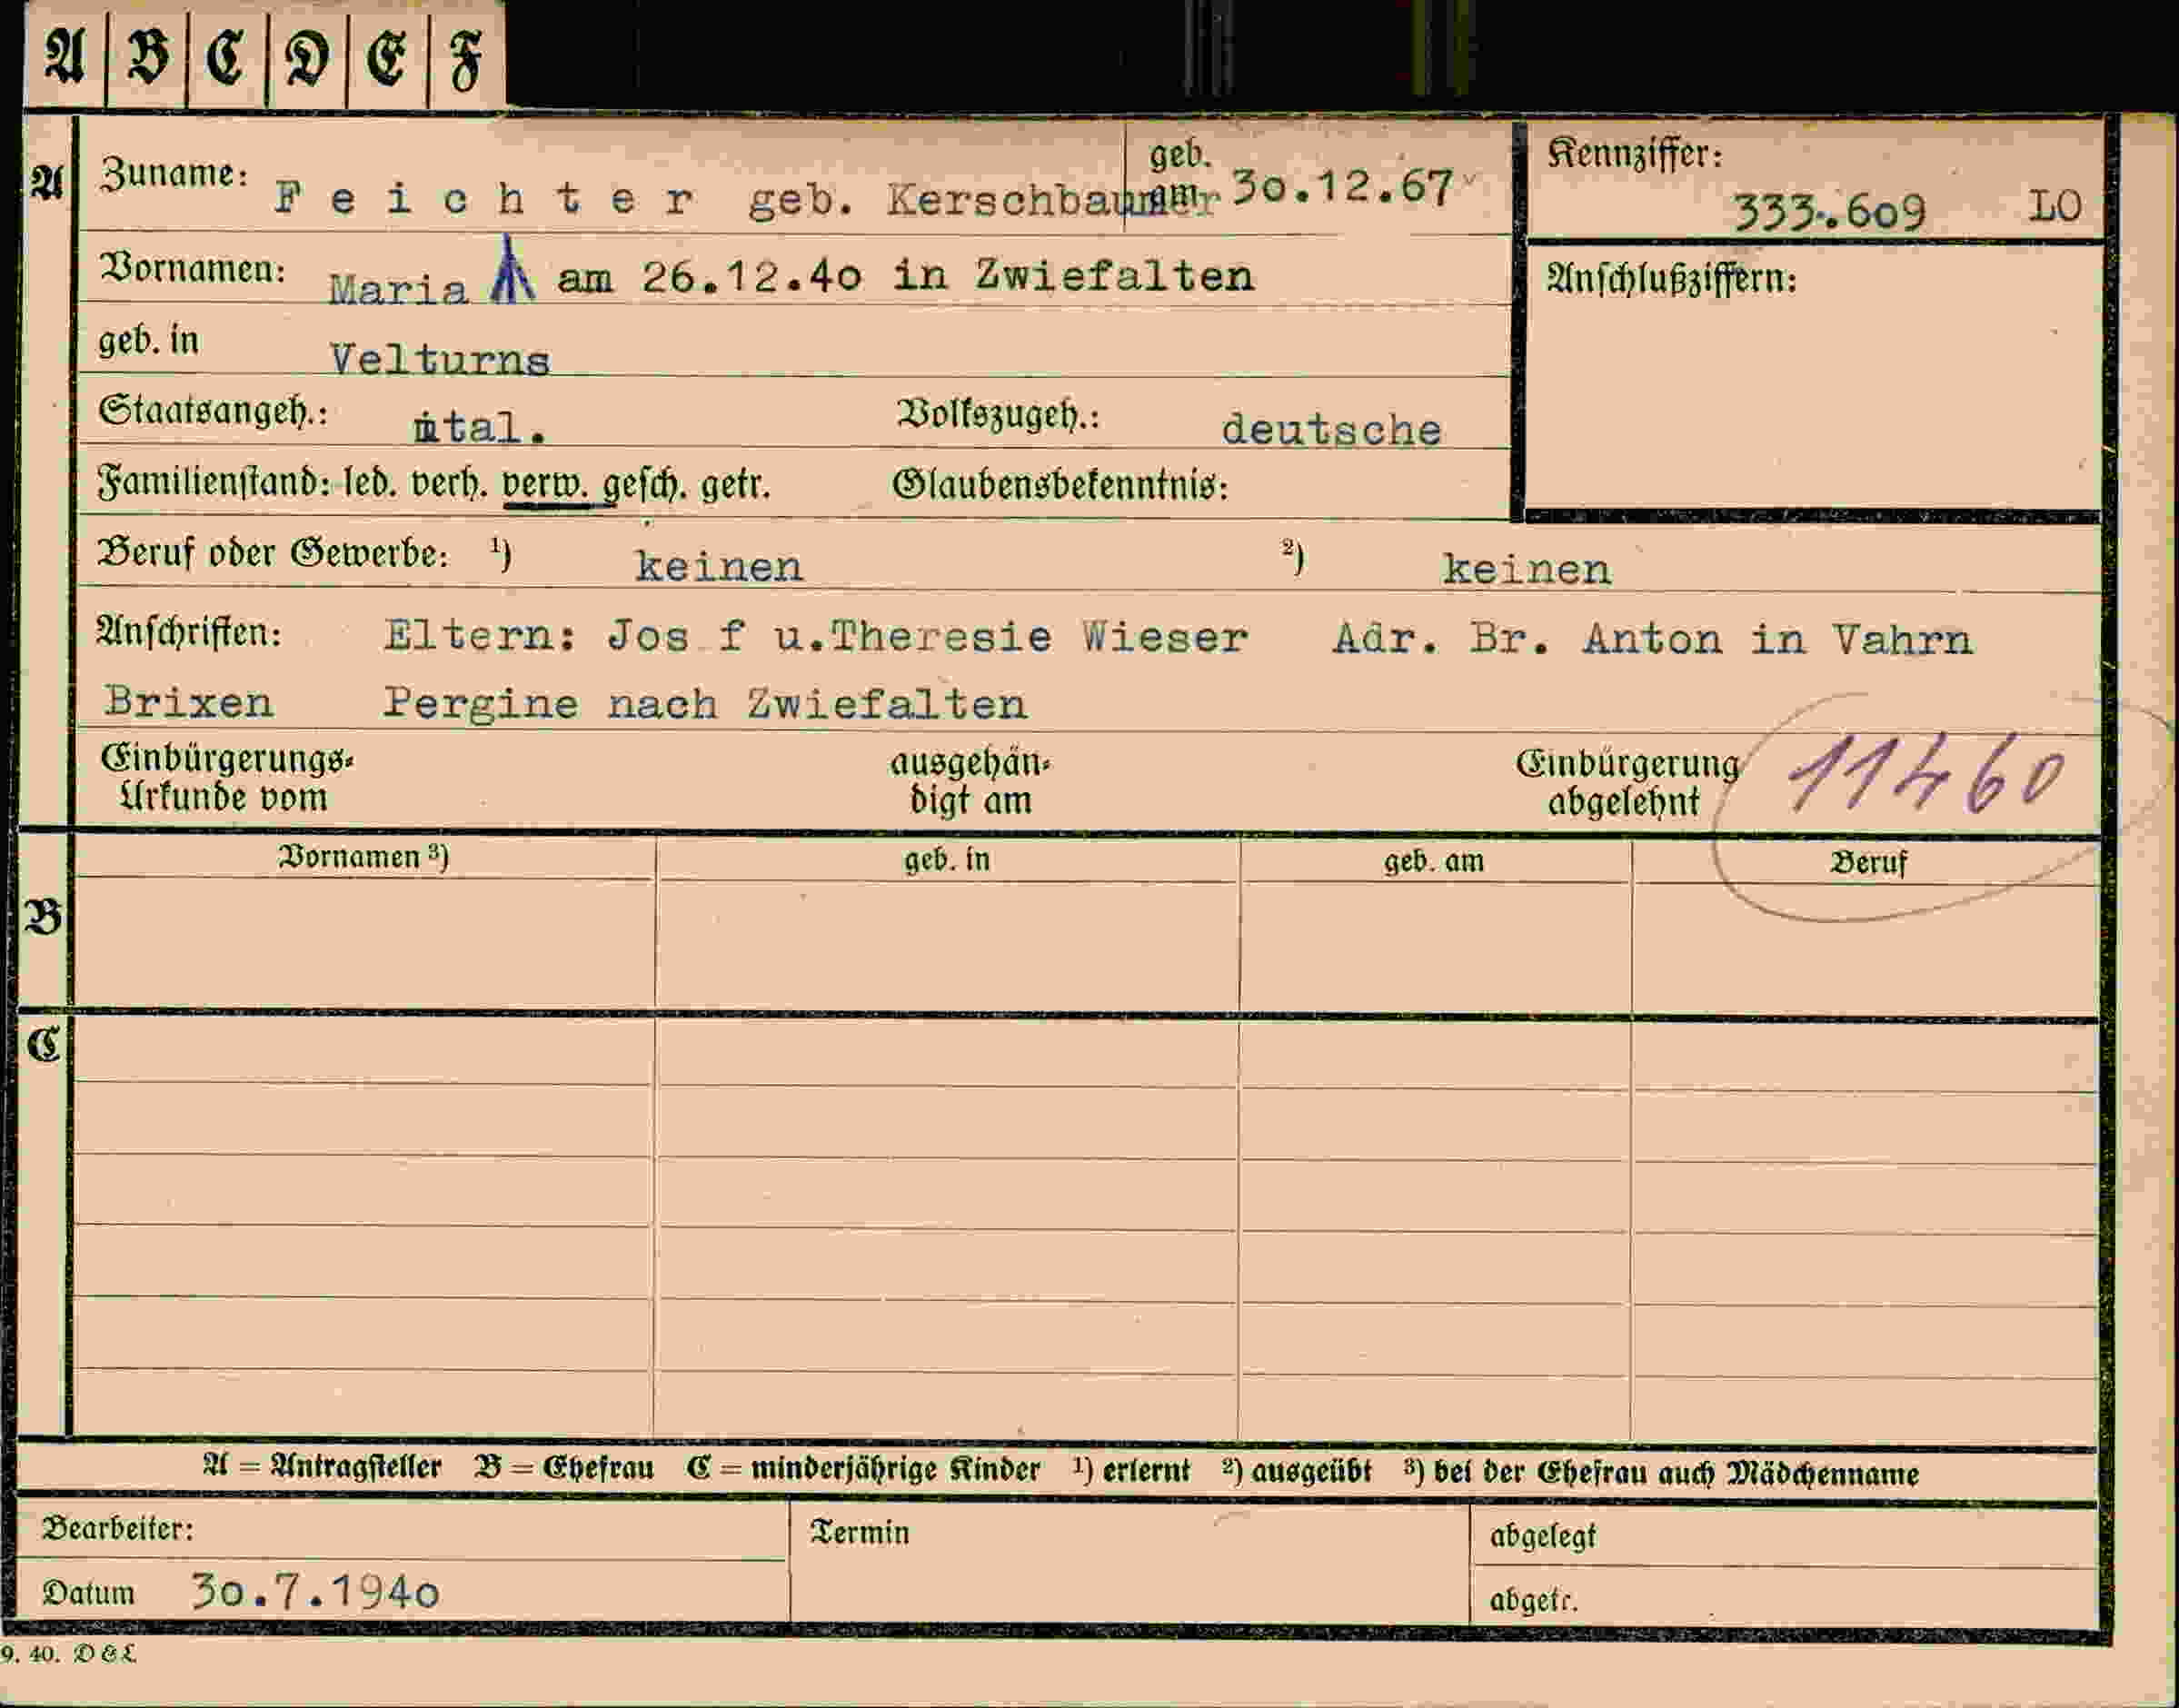 A B C D E F
A Zuname: Feichter geb. Kerschbaumer geb. am 30.12.67 Kennziffer: 333.609 LO
Vornamen: Maria am 26.12.40 in Zwiefalten Anschlußziffern:
geb. in Velturns
Staatsangeh.: ital. Volkszugeh.: deutsche
Familienstand: led. verh. verw. gesch. getr. Glaubensbekenntnis:
Beruf oder Gewerbe: 1) keinen 2) keinen
Anschriften: Eltern: Jos f u.Theresie Wieser Adr. Br. Anton in Vahrn
Brixen Pergine nach Zwiefalten
Einbürgerungs- ausgehän- Einbürgerung 11460
Urkunde vom digt am abgelehnt
Vornamen 3) geb. in geb. am Beruf
B
C
A = Antragsteller B = Ehefrau C = minderjährige Kinder 1) erlernt 2) ausgeübt 3) bei der Ehefrau auch Mädchenname
Bearbeiter: Termin abgelegt
Datum 30.7.1940 abgetr.
9. 40. D & L